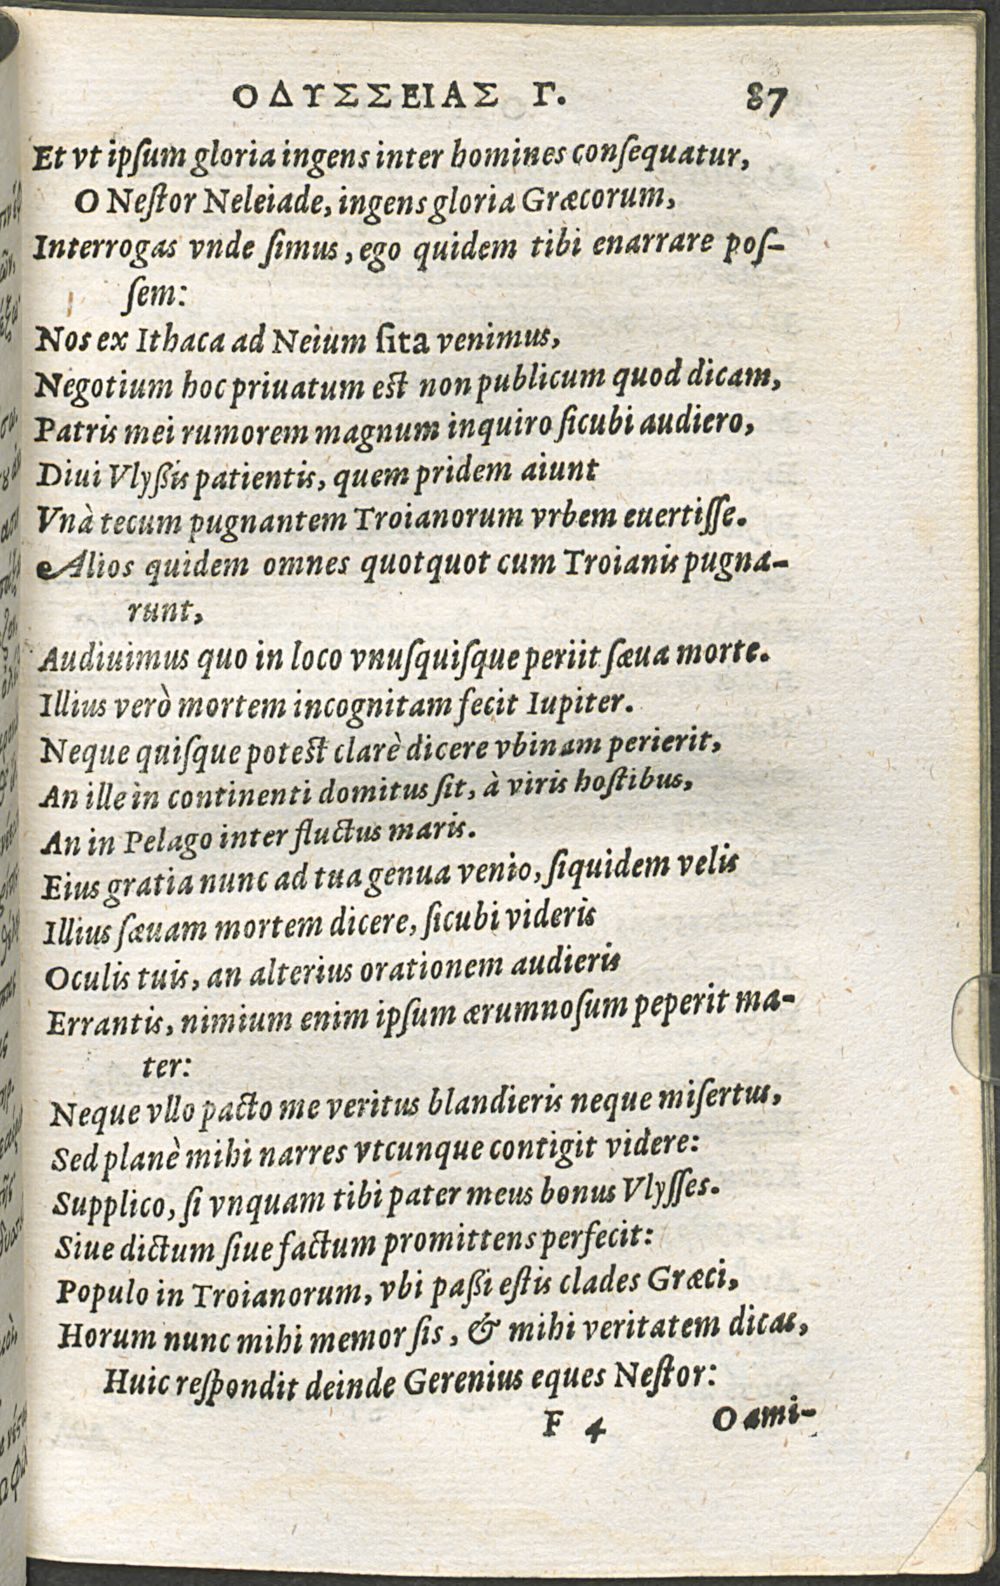 ΟΔΥΣΣΕΙΑΣ Γ. 87
Et vt ipſum gloria ingens inter homines conſequatur,
O Neſtor Neleiade, ingens gloria Græcorum,
Interrogas vnde ſimus, ego quidem tibi enarrare poſ-
ſem:
Nos ex Ithaca ad Neium ſita venimus,
Negotium hoc priuatum est non publicum quod dicam,
Patris mei rumorem magnum inquiro ſicubi audiero,
Diui Vlyßis patientis, quem pridem aiunt
Vnà tecum pugnantem Troianorum vrbem euertiſſe.
Alios quidem omnes quotquot cum Troianis pugna-
runt,
Audiuimus quo in loco vnuſquiſque periit ſæua morte.
Illius verò mortem incognitam fecit Iupiter.
Neque quiſque potest clarè dicere vbinam perierit,
An ille in continenti domitus ſit, à viris hoſtibus,
An in Pelago inter fluctus maris.
Eius gratia nunc ad tua genua venio, ſiquidem velis
Illius ſæuam mortem dicere, ſicubi videris
Oculis tuis, an alterius orationem audieris
Errantis, nimium enim ipſum ærumnoſum peperit ma-
ter:
Neque vllo pacto me veritus blandieris neque miſertus,
Sed planè mihi narres vtcunque contigit videre:
Supplico, ſi vnquam tibi pater meus bonus Vlyſſes.
Siue dictum ſiue factum promittens perfecit:
Populo in Troianorum, vbi paßi eſtis clades Græci,
Horum nunc mihi memor ſis, & mihi veritatem dicas,
Huic reſpondit deinde Gerenius eques Neſtor:
F 4 O ami-